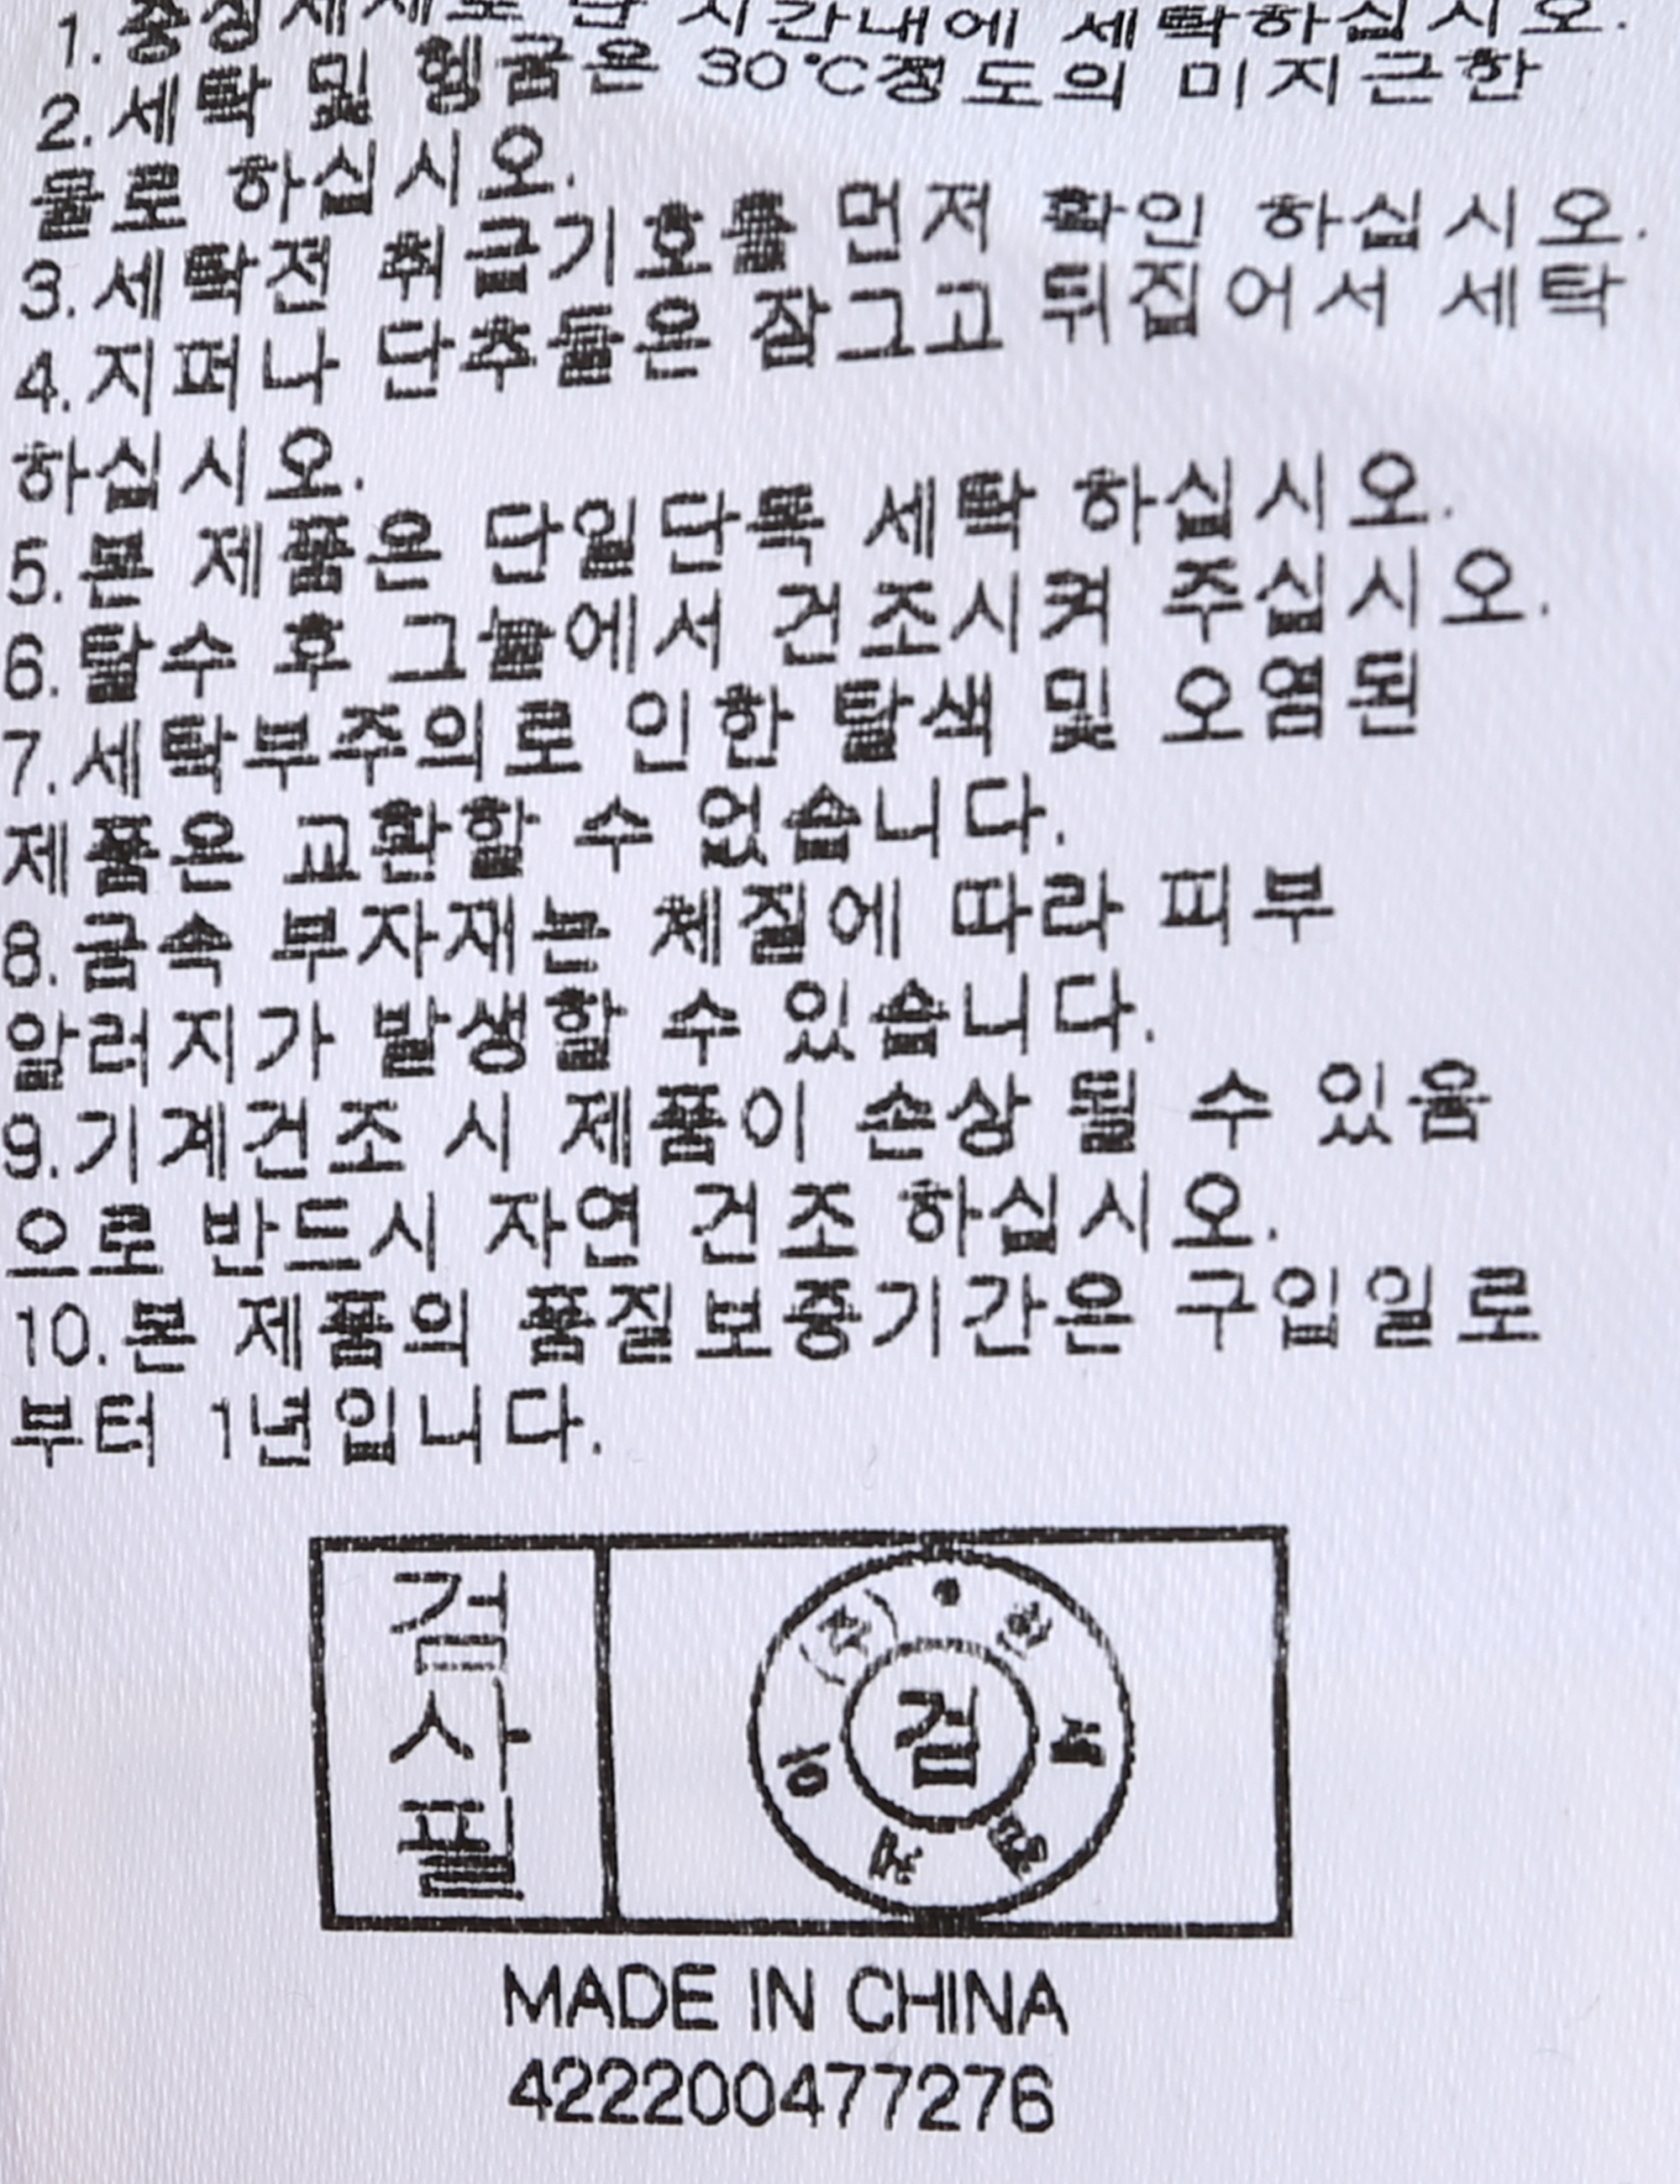 1.중성세제로 단 시간내에 세탁하십시오.
2.세탁 및 헹굼은 30°C정도의 미지근한
물로 하십시오.
3.세탁전 취급기호를 먼저 확인 하십시오.
4.지퍼나 단추들은 잠그고 뒤집어서 세탁
하십시오.
5.본 제품은 단일단독 세탁 하십시오.
6.탈수 후 그늘에서 건조시켜 주십시오.
7.세탁부주의로 인한 탈색 및 오염된
제품은 교환할 수 없습니다.
8.금속 부자재는 체질에 따라 피부
알러지가 발생할 수 있습니다.
9.기계건조 시 제품이 손상 될 수 있음
으로 반드시 자연 건조 하십시오.
10.본 제품의 품질보증기간은 구입일로
부터 1년입니다.
검사필
검
MADE IN CHINA
422200477276